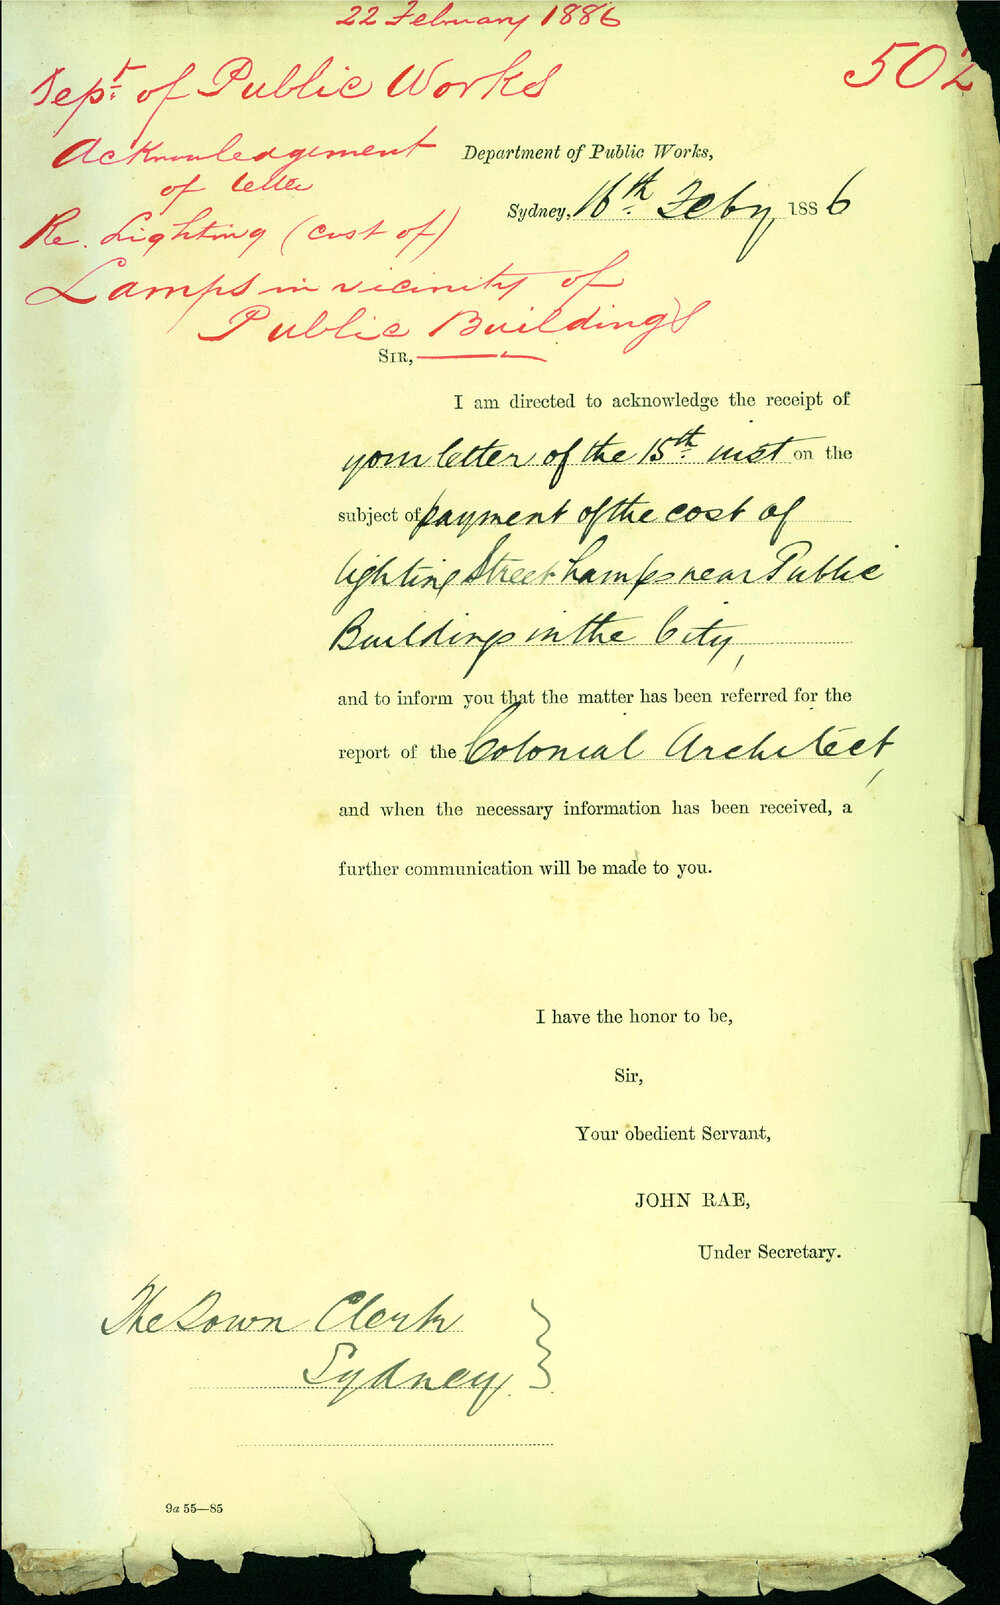 22 February 1886
502
Dept. of Public Works
Acknowledgement
of letter
Re. Lighting (cost of)
Lamps in vicinity of
Public Buildings
Department of Public Works,
Sydney, 16th. Feby 1886
SIR,
I am directed to acknowledge the receipt of
your letter of the 15th. inst on the
subject of payment of the cost of
lighting Street Lamps near Public
Buildings in the City,
and to inform you that the matter has been referred for the
report of the Colonial Architect,
and when the necessary information has been received, a
further communication will be made to you.
I have the honor to be,
Sir,
Your obedient Servant,
JOHN RAE,
Under Secretary.
The Town Clerk
Sydney.
9a 55—85